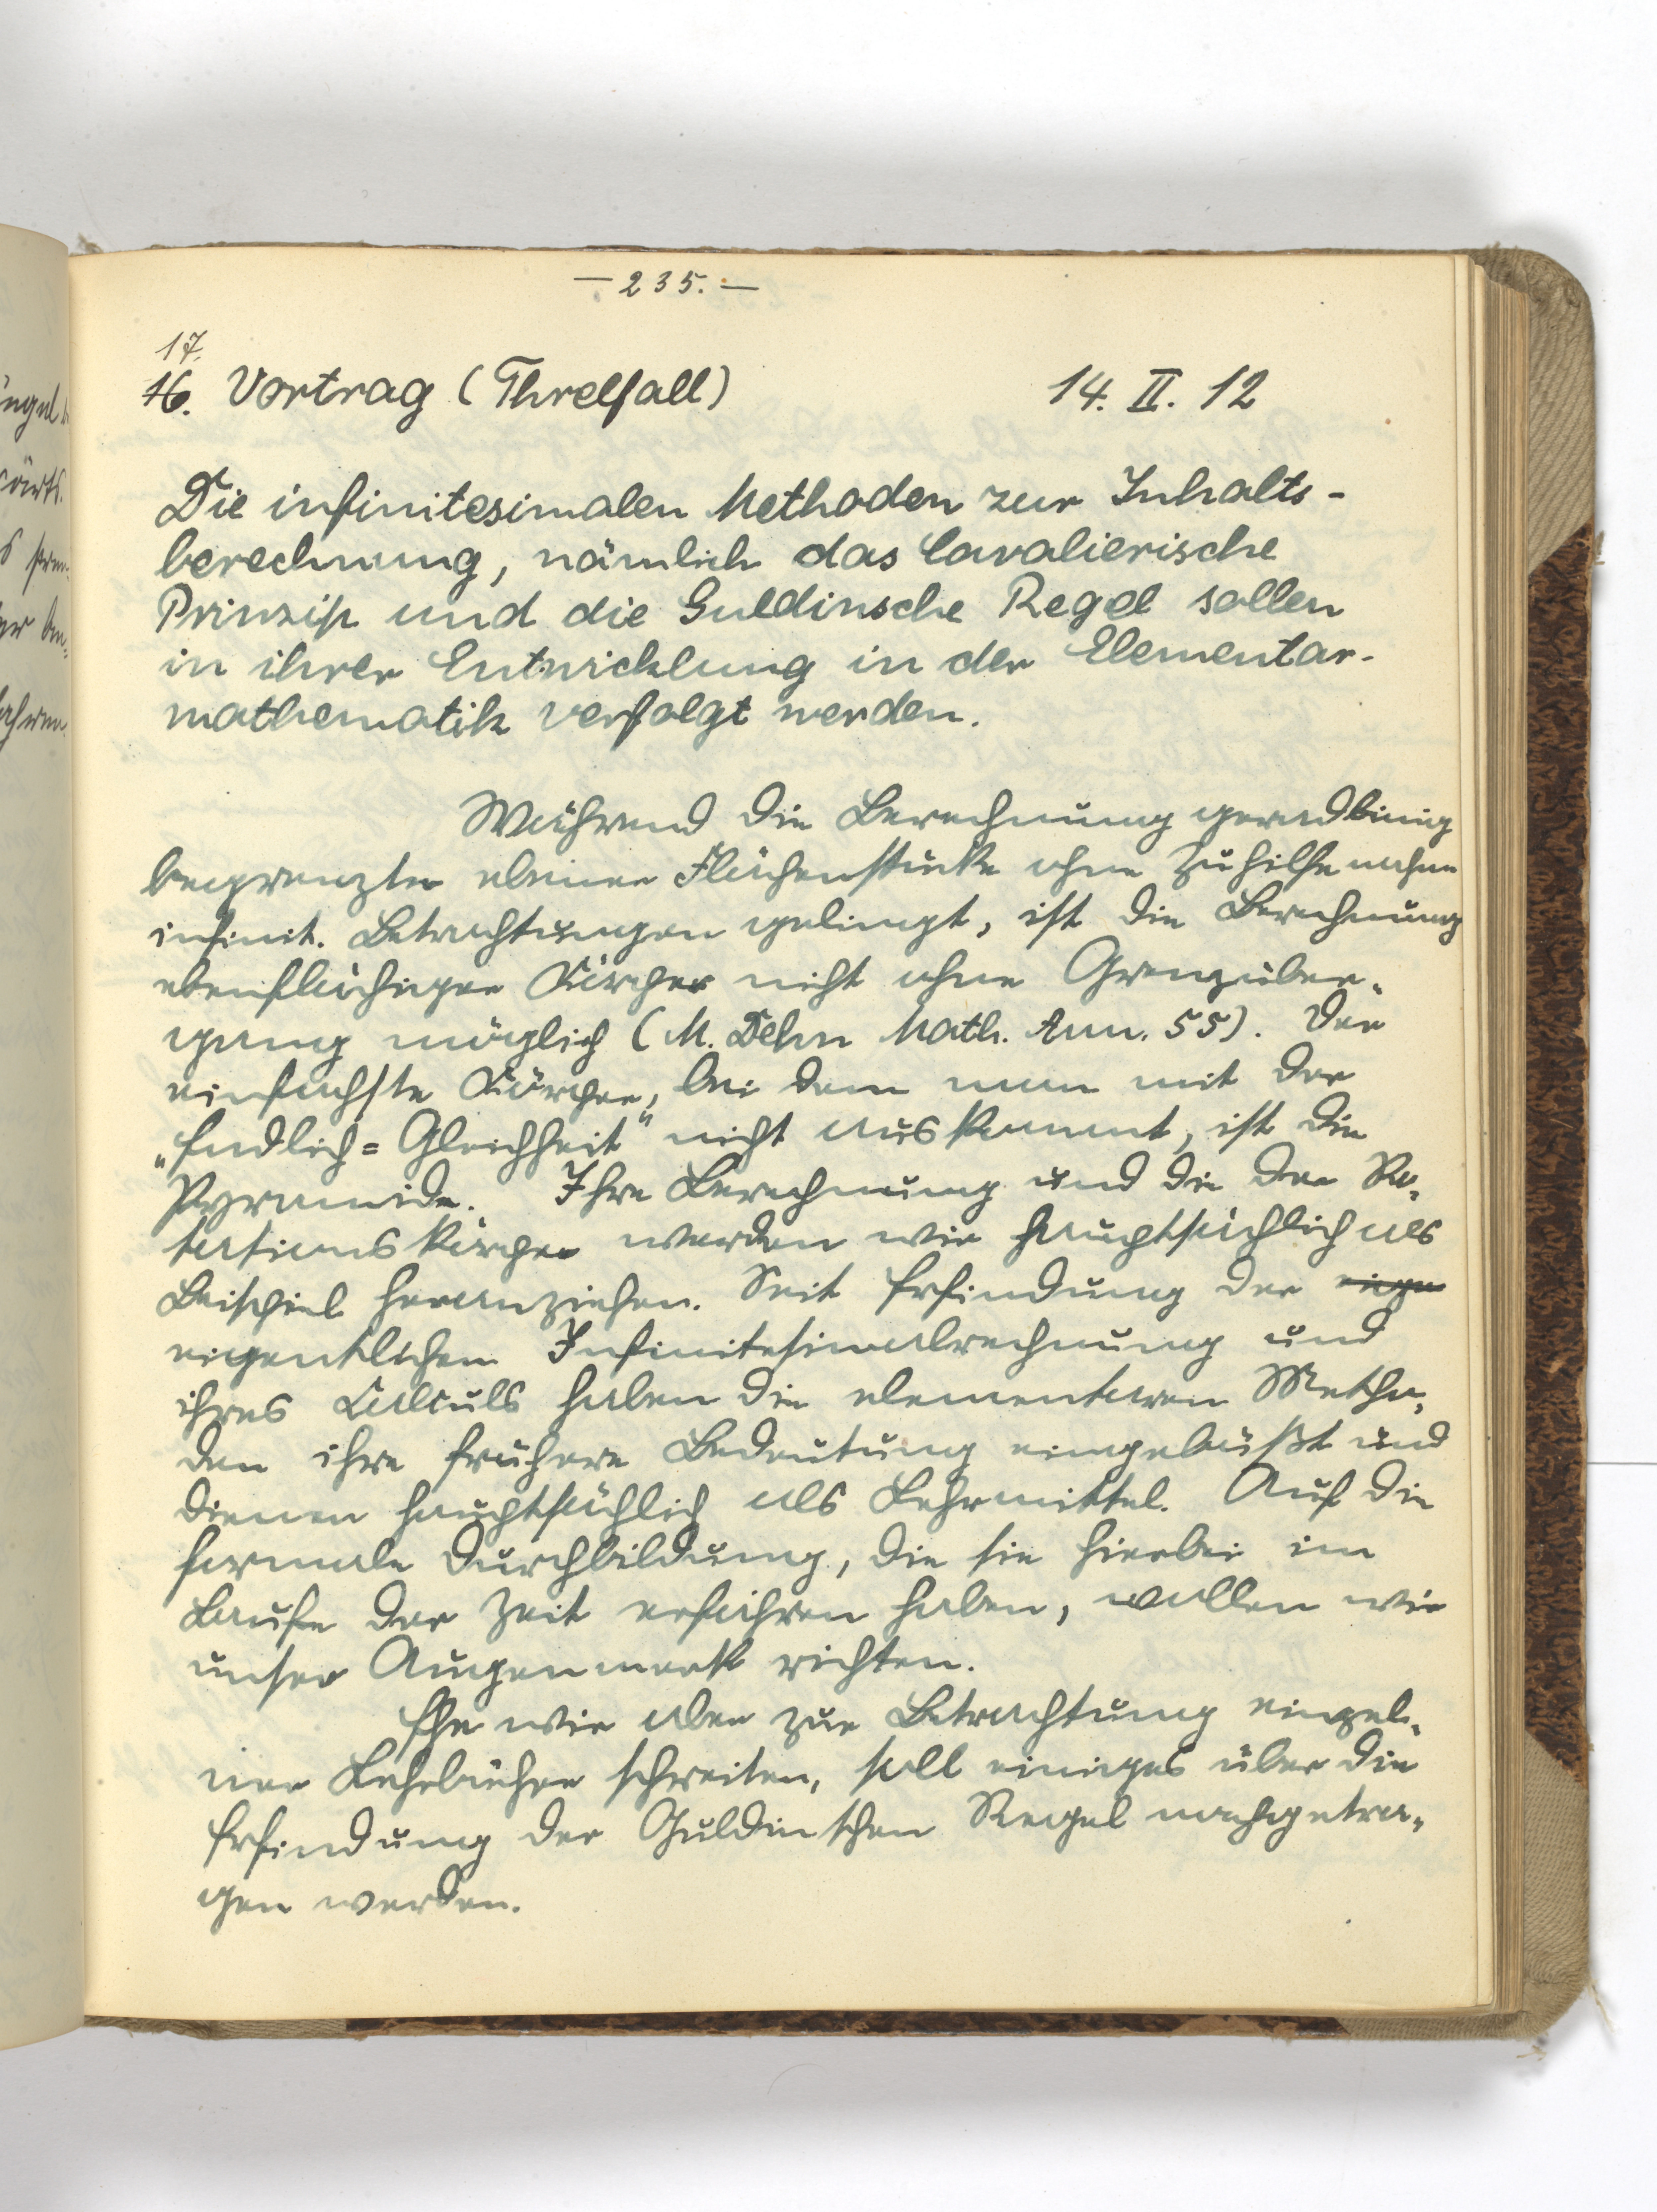 — 235. —
17.
16. Vortrag (Threlfall) 14. II. 12
Die infinitesimalen Methoden zur Inhalts-
berechnung, nämlich das Cavalierische
Prinzip und die Guldinsche Regel sollen
in ihrer Entwicklung in der Elementar-
mathematik verfolgt werden.
Während die Berechnung geradlinig
begrenzter ebener Flächenstücke ohne Zuhilfenahme
infinit. Betrachtungen gelingt, ist die Berechnung
ebenflächiger Körper nicht ohne Grenzüber-
gang möglich (M. Dehn Math. Ann. 55). Der
einfachste Körper, bei dem man mit der
„Endlich=Gleichheit" nicht auskommt, ist die
Pyramide. Ihre Berechnung und die der Ro-
tationskörper werden wir hauptsächlich als
Beispiel heranziehen. Seit Erfindung der eige
eigentlichen Infinitesimalrechnung und
ihres Calculs haben die elementaren Metho-
den ihre frühere Bedeutung eingebüßt und
dienen hauptsächlich als Lehrmittel. Auf die
formale Durchbildung, die sie hierbei im
Laufe der Zeit erfahren haben, wollen wir
unser Augenmerk richten.
Ehe wir aber zur Betrachtung einzel-
ner Lehrbücher schreiten, soll einiges über die
Erfindung der Guldinschen Regel nachgetra-
gen werden.